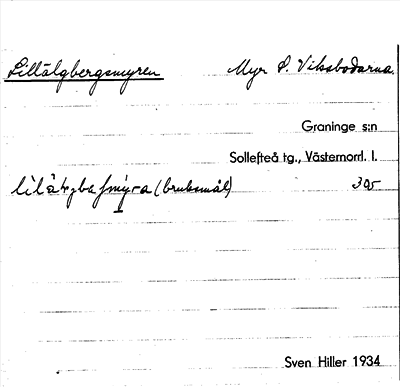 Lillälgbergsmyren Myr S. Viksbodarna.
Graninge s:n
Sollefteå tg., Västernorrl. l.
(bruksmål)
Sven Hiller 1934